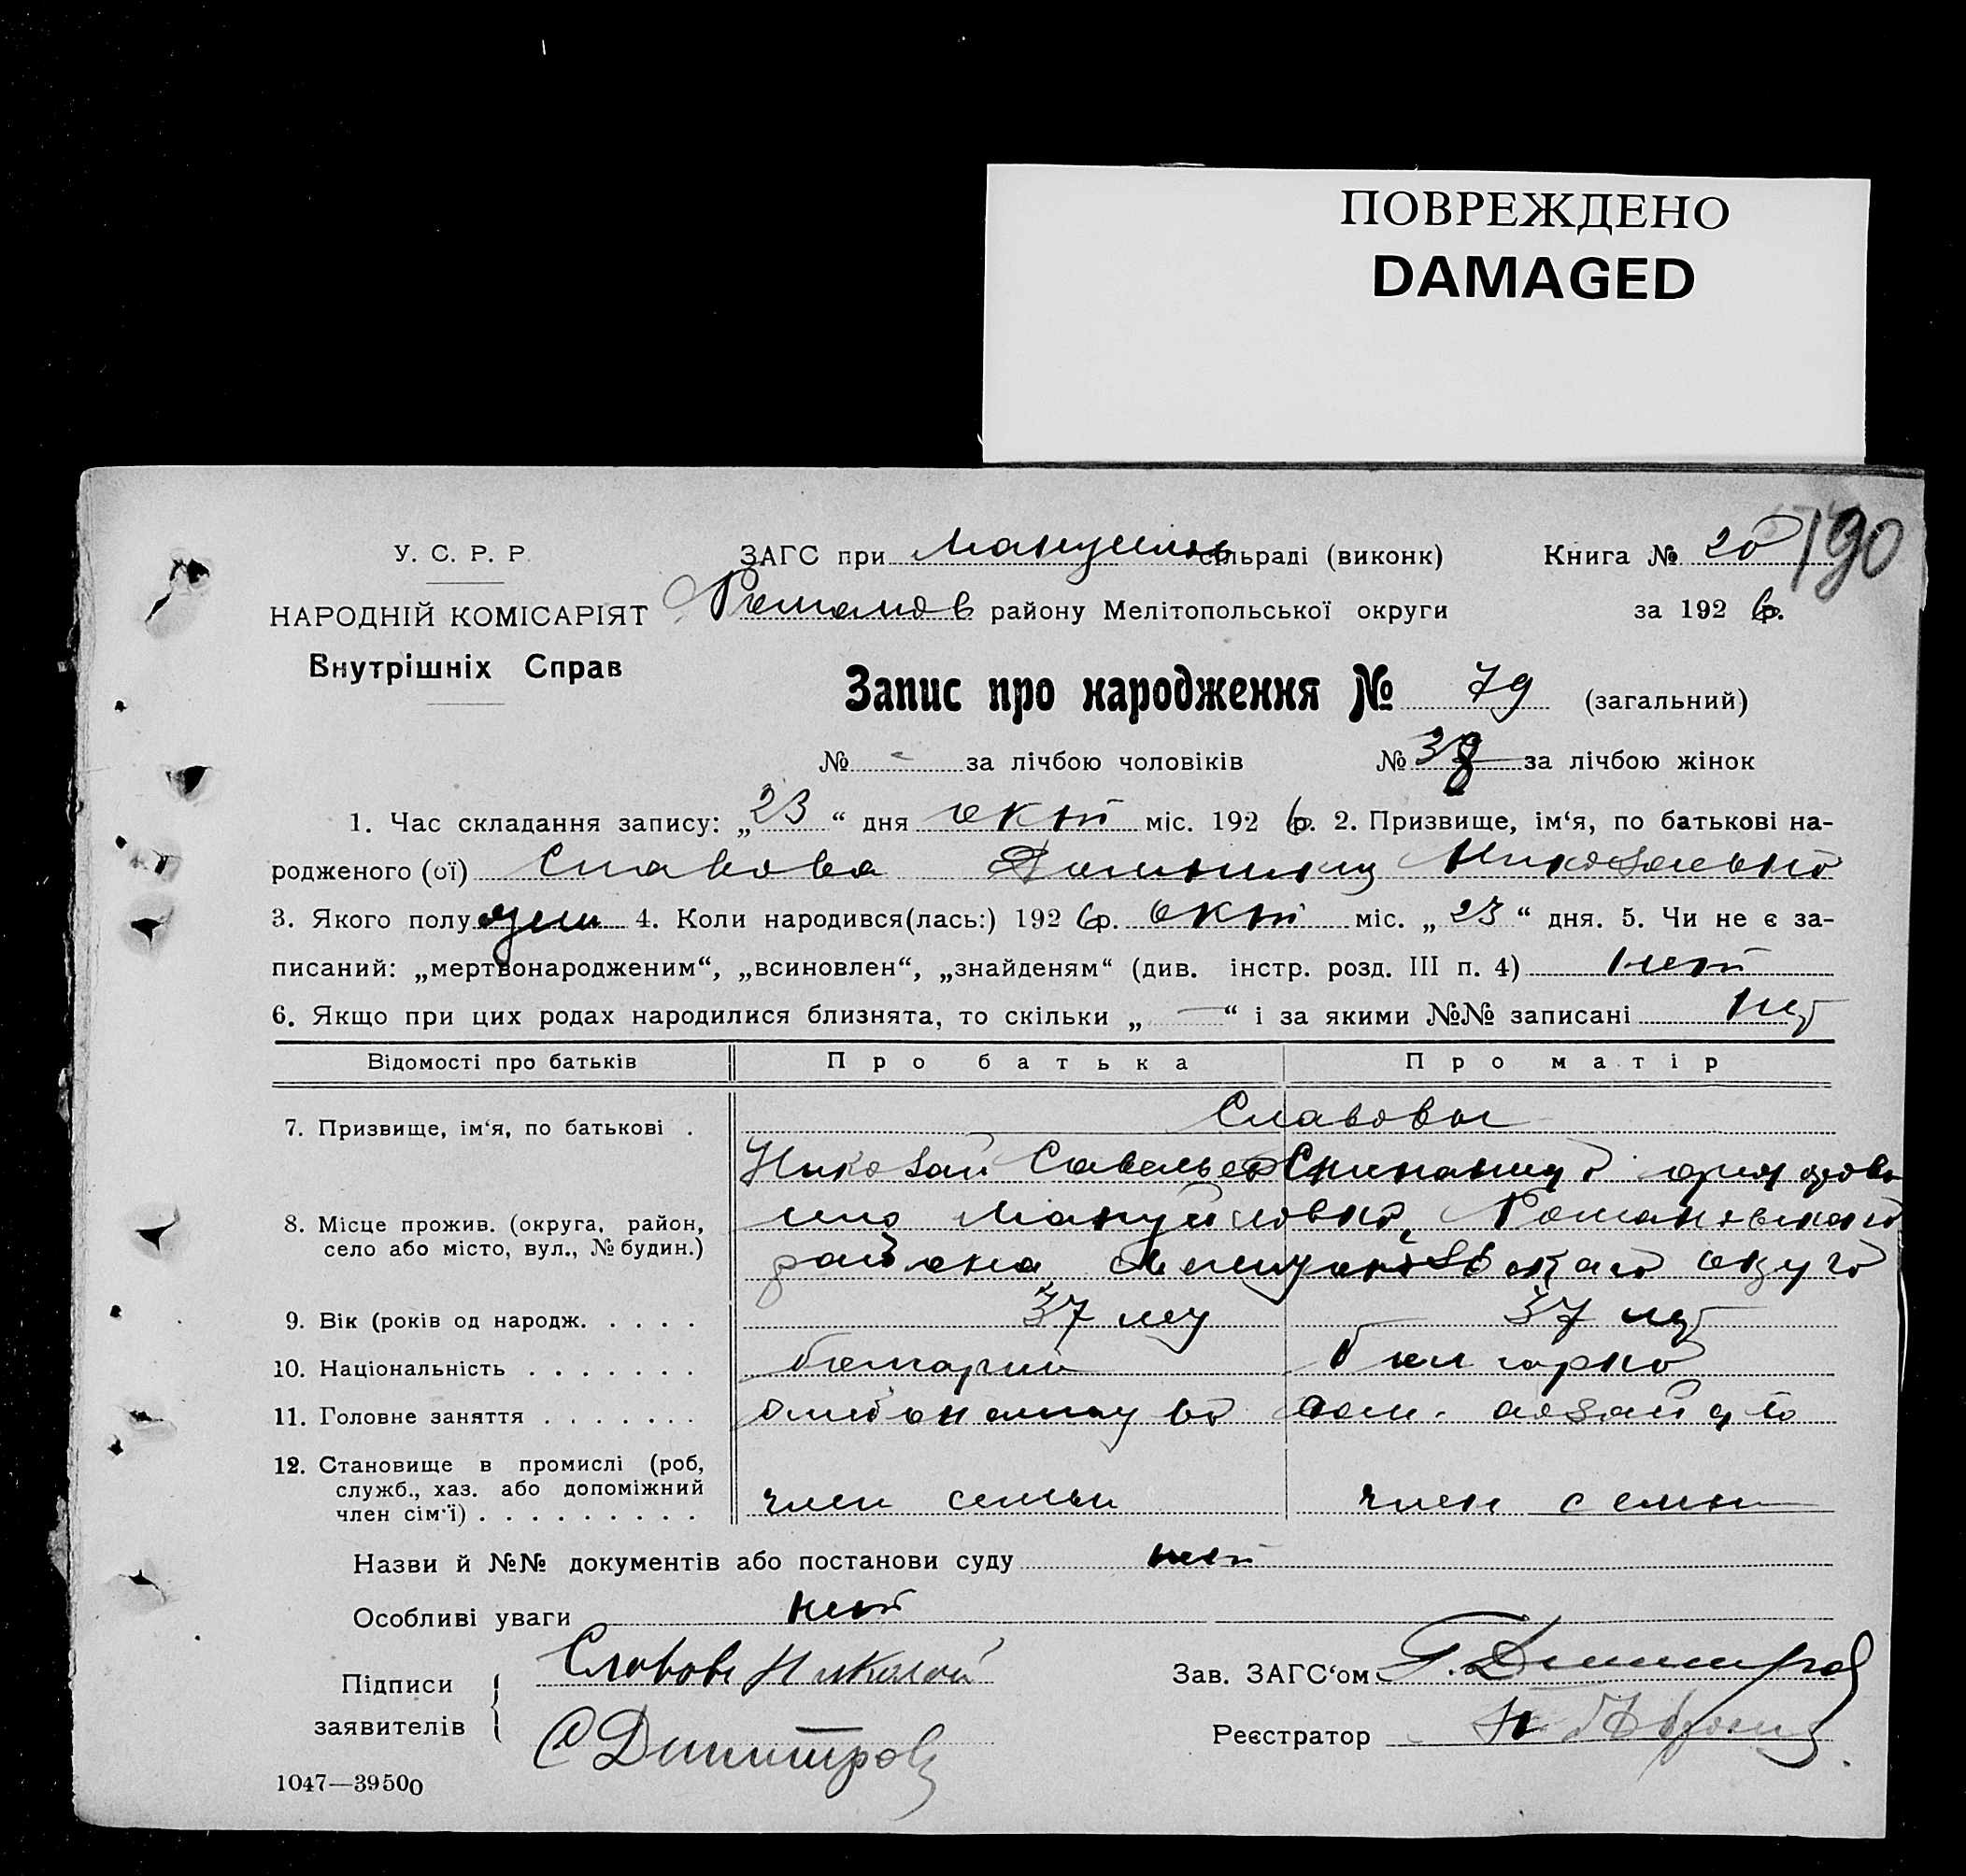 ПОВРЕЖДЕНО
DAMAGED
190
У. С. Р. Р.
НАРОДНІЙ КОМІСАРІЯТ
Внутрішніх Справ
ЗАГС при Мануйлов сільраді (виконк) Книга № 20
Романов району Мелітопольської округи за 1926 р.
Запис про народження № 79 (загальний)
№ - за лічбою чоловіків № 38 за лічбою жінок
1. Час складання запису: „23“ дня окт міс. 1926 р. 2. Призвище, ім‘я, по батькові на-
родженого (ої) Славова Николаевна
3. Якого полу жен 4. Коли народився(лась:) 1926 р. окт міс. „23“ дня. 5. Чи не є за-
писаний: „мертвонародженим“, „всиновлен“, „знайденям“ (див. інстр. розд. III п. 4) нет
6. Якщо при цих родах народилися близнята, то скільки „—“ і за якими №№ записані нет
Відомості про батьків Про батька Про матір
7. Призвище, ім‘я, по батькові . Славовы
Николай Савельев
8. Місце прожив. (округа, район, село або місто, вул., № будин.) Мануйловка, Романовского
района округа
9. Вік (років од народж. . . . . 37 лет 37 лет
10. Національність . . . . . . . болгарин болгарка
11. Головне заняття . . . . . . . дом. хозяйство
12. Становище в промислі (роб,
служб., хаз. або допоміжний
член сім‘ї) . . . . . . . . . член семьи член семьи
Назви й №№ документів або постанови суду нет
Особливі уваги нет
Підписи заявителів Славов Николай
С Димитров
Зав. ЗАГС‘ом Г. Димитров
Реєстратор
1047—39500